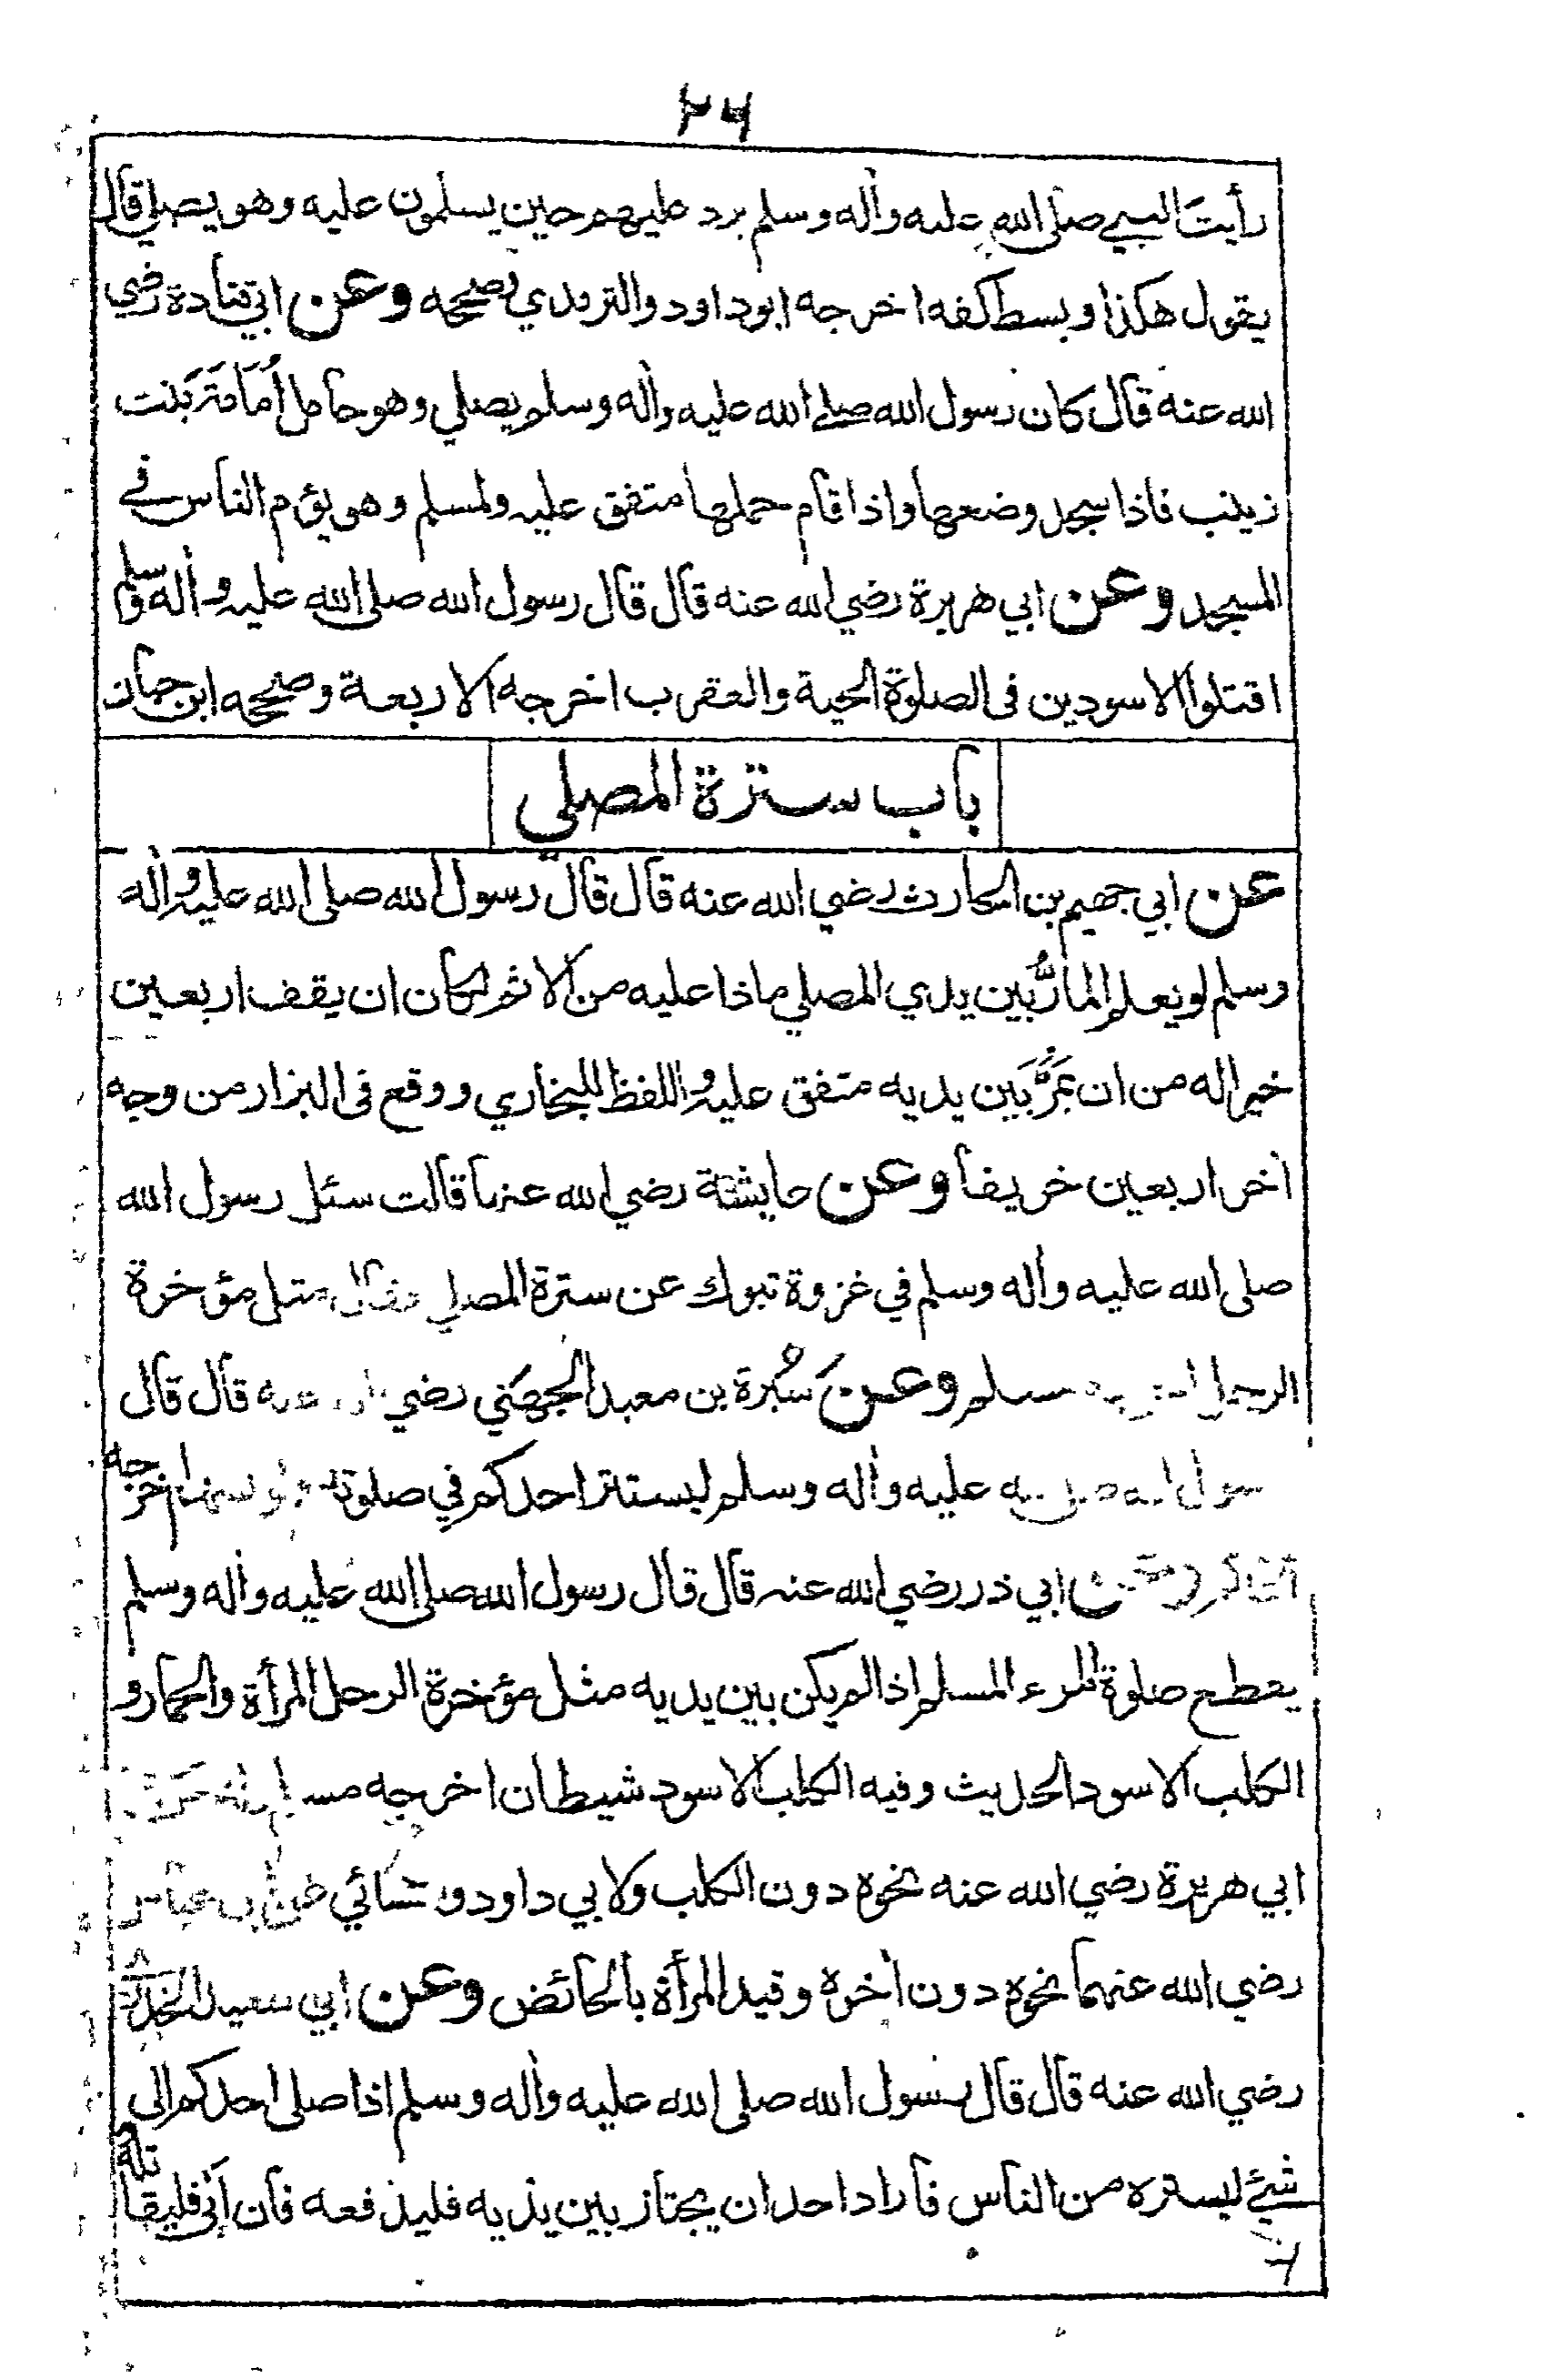 ٢٦
رأيت النبي صلى الله عليه واٰله وسلم يرد عليهم حين يسلمون عليه وهو يصلي قال
يقول هكذا وبسط كفه اخرجه ابوداود والترمذي وصححه وعن ابي قتادة رضي
الله عنه قال كان رسول الله صلے الله عليه واٰله وسلم يصلي وهو حامل اُمَامَة بَنت
زينب فاذا سجد وضعها واذا قام حملها متفق عليه ولمسلم وهو يؤم الناس في
المسجد وعن ابي هريرة رضي الله عنه قال قال رسول الله صلى الله عليه واٰله وسلم
اقتلوا الاسودين فى الصلوة الحية والعقرب اخرجه الاربعة وصححه ابن حبان
باب سترة المصلي
عن ابي جهيم بن الحارث رضي الله عنه قال قال رسول الله صلى الله عليه واٰله
وسلم لو يعلم المارُّ بين يدي المصلي ماذا عليه من الاثم لكان ان يقف اربعين
خيرا له من ان يمَرَّ بَين يديه متفق عليه واللفظ للبخاري ووقع فى البزار من وجه
اٰخر اربعين خريفا وعن عايشة رضي الله عنها قالت سئل رسول الله
صلى الله عليه واٰله وسلم في غزوة تبوك عن سترة المصلي فقال مثل مؤخرة
الرحل اخرجه مسلم وعن سَبُرة بن معبد الجهَني رضي الله عنه قال قال
رسول الله صلى الله عليه واٰله وسلم ليستتر احدكم في صلوته ولو بسهم اخرجه
الحاكم وعن ابي ذر رضي الله عنه قال قال رسول الله صلى الله عليه واٰله وسلم
يقطع صلوة المرء المسلم اذا لم يكن بين يديه مثل مؤخرة الرحل المرأة والحمار و
الكلب الاسود الحديث وفيه الكلب الاسود شيطان اخرجه مسلم وله عن
ابي هريرة رضي الله عنه نحوه دون الكلب ولابي داود والنسائي عن ابن عباس
رضي الله عنهما نحوه دون اٰخره وقيد المرأة بالحائض وعن ابي سعيد الخدري
رضي الله عنه قال قال رسول الله صلى الله عليه واٰله وسلم اذا صلى احدكم الى
شيء يستره من الناس فاراد احد ان يجتاز بين يديه فليدفعه فان اَبٰى فليقاتله